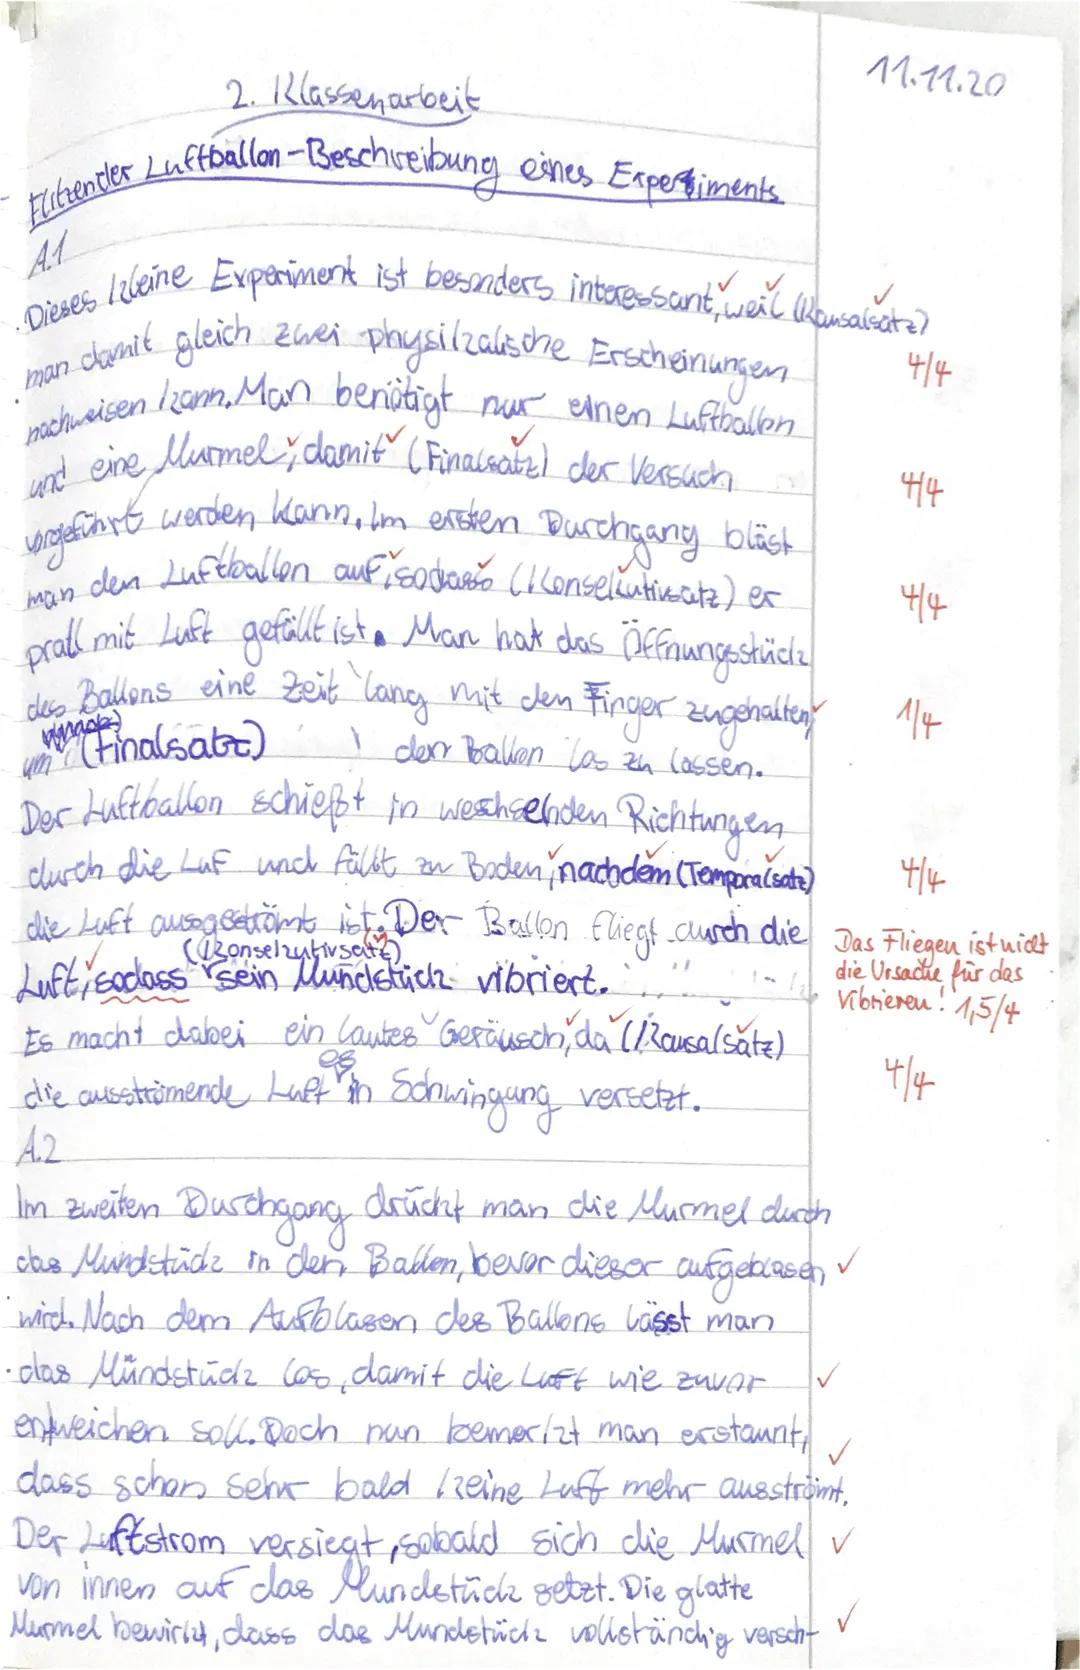 11.11.20
2. Klassenarbeit
Flitzender Luftballon - Beschreibung eines Experiments
A.1
Dieses kleine Experiment ist besonders interessant, weil (Kausalsatz)
man damit gleich zwei physikalische Erscheinungen
4/4
nachweisen kann. Man benötigt nur einen Luftballon
und eine Murmel, damit (Finalsatz) der Versuch
4/4
vorgeführt werden kann. Im ersten Durchgang bläst
man den Luftballon auf, sodass (Konsekutivsatz) er
4/4
prall mit Luft gefüllt ist. Man hat das Öffnungsstück
des Ballons eine Zeit lang mit den Finger zugehalten,
1/4
um (Finalsatz) den Ballon los zu lassen.
Der Luftballon schießt in weschselnden Richtungen
durch die Luf und fällt zu Boden, nachdem (Temporalsatz)
4/4
die Luft ausgeströmt ist. Der Ballon fliegt durch die
(Konsekutivsatz)
Luft, sodass sein Mundstück vibriert.
Das Fliegen ist nicht
die Ursache für das
Vibrieren! 1,5/4
Es macht dabei ein lautes Geräusch, da (Kausalsatz)
es
die ausströmende Luft in Schwingung versetzt.
4/4
A.2
Im zweiten Durchgang drückt man die Murmel durch
das Mundstück in den Ballon, bevor dieser aufgeblasen
wird. Nach dem Aufblasen des Ballons lässt man
das Mündstück los, damit die Luft wie zuvor
entweichen soll. Doch nun bemerkt man erstaunt,
dass schon sehr bald keine Luft mehr ausströmt.
Der Luftstrom versiegt, sobald sich die Murmel
von innen auf das Mundstück setzt. Die glatte
Murmel bewirkt, dass das Mundstück vollständig versch-